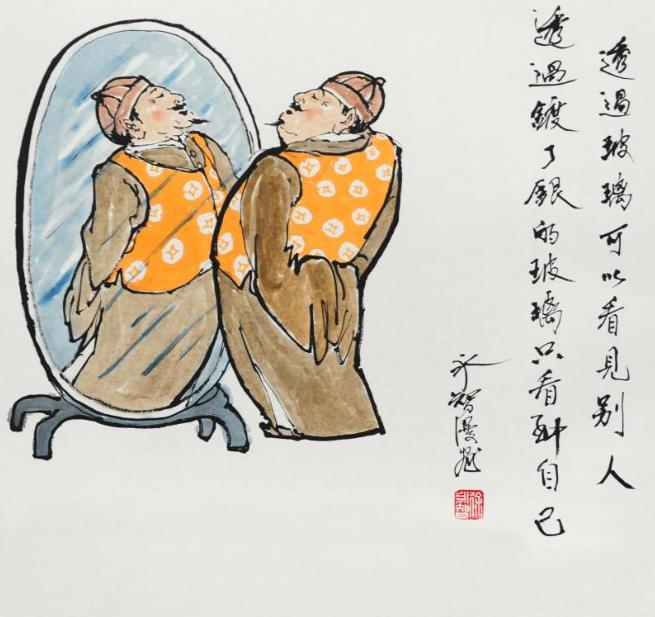 透過玻璃可以看見別人
透過鍍了銀的玻璃只看到自己
永智漫